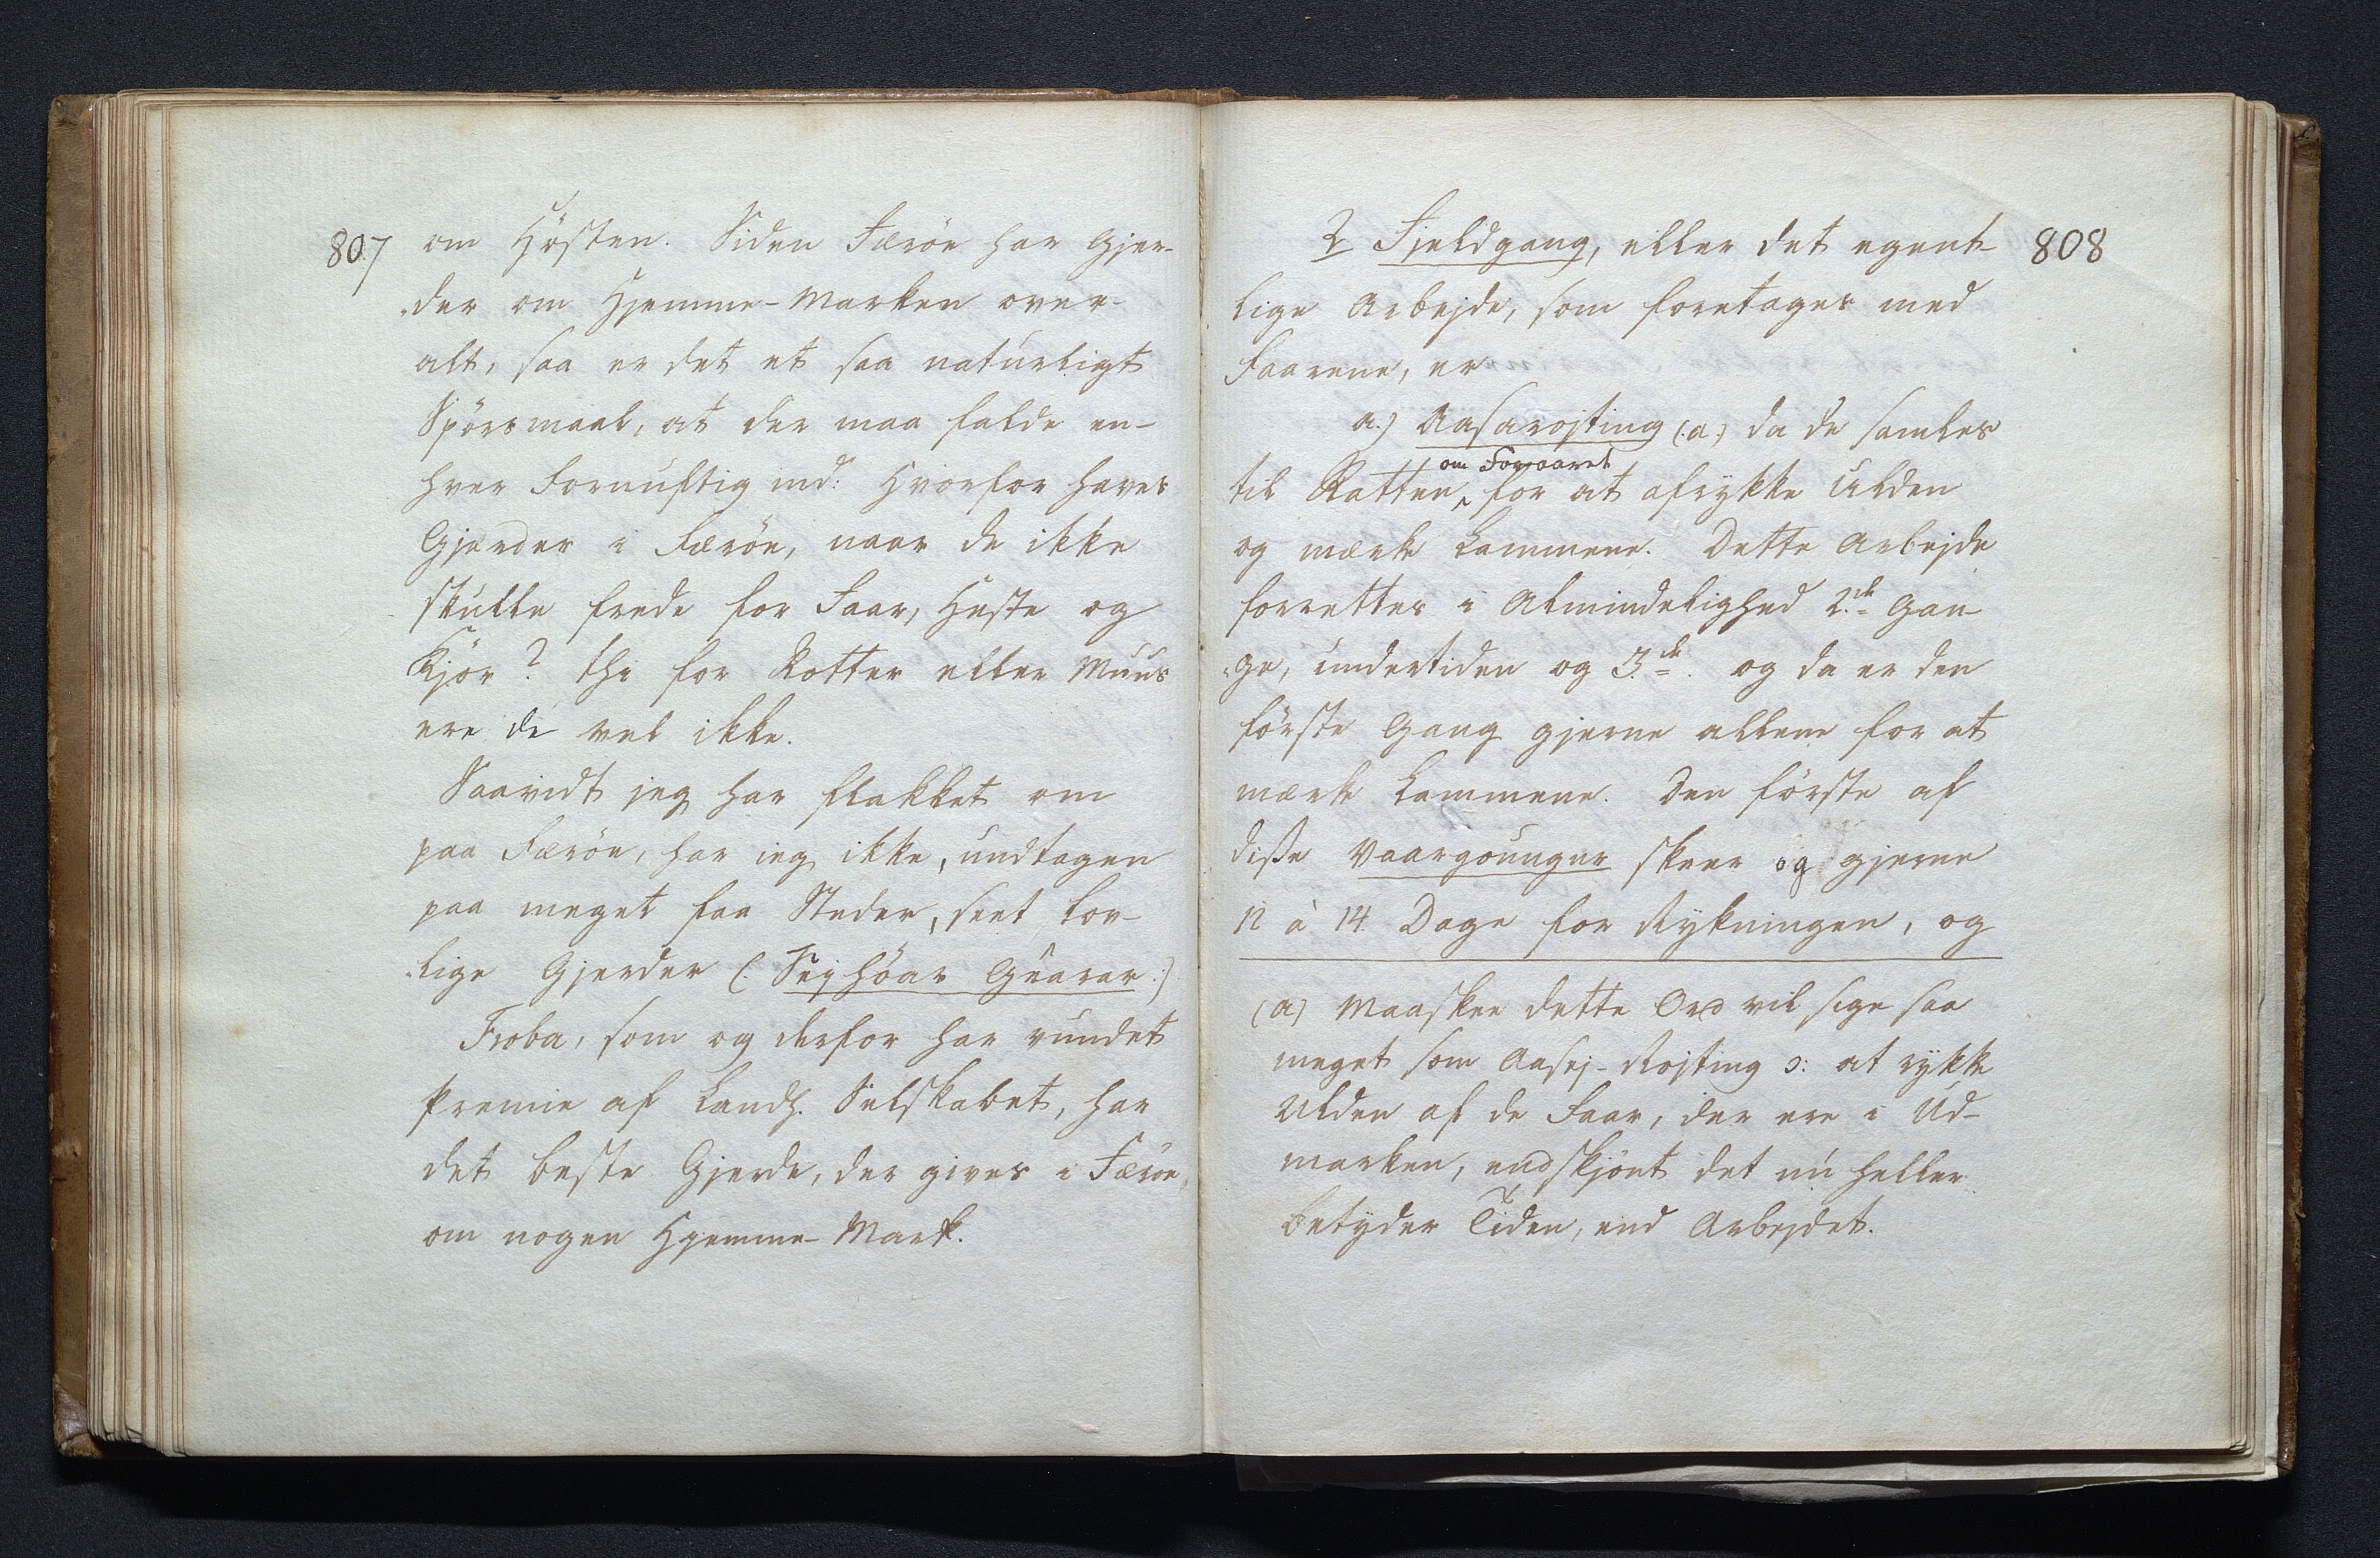 807
om Hösten. Siden Færöe har Gjer-
der om Hjemme-Marken over-
alt, saa er det et saa naturligt
Spörsmaal, at der maa falde en-
hver Fornuftig ind: Hvorfor haves
Gjerder i Færöe, naar de ikke
skulle frede for Faar, Heste og
Kjör? thi for Rotter eller Muus
ere de vel ikke.
Saavidt jeg har flakket om
paa Færöe, har ieg ikke, undtagen
paa meget faa Steder, seet lov-
lige Gjerder (: Sejhöar Gearar :)
Froba, som og derfor har vundet
Premie af Landh. Selskabet, har
det beste Gjerde, der gives i Færöe
om nogen Hjemme-Mark.
808
2 Fjeldgang, eller det egent-
lige Arbejde, som foretages med
Faarene, er
a.) Aasarojting (:a:) da de samles
om Foraaret
til Rætten for at afrykke Ulden
og mærke Lammene. Dette Arbejde
forrettes i Almindelighed 2de Gan
ge, undertiden og 3de. og da er den
förste Gang gjerne allene for at
mærke Lammene. Den förste af
disse Vaargoungur skeer og gjerne
12 à 14 Dage for Rykningen, og
(a) Maaskee dette Ord vil sige saa
meget som Aasej-Rojting ɔ: at rykke
Ulden af de Faar, der ere i Ud-
marken, endskjönt det nu heller
betyder Tiden, end Arbejdet.